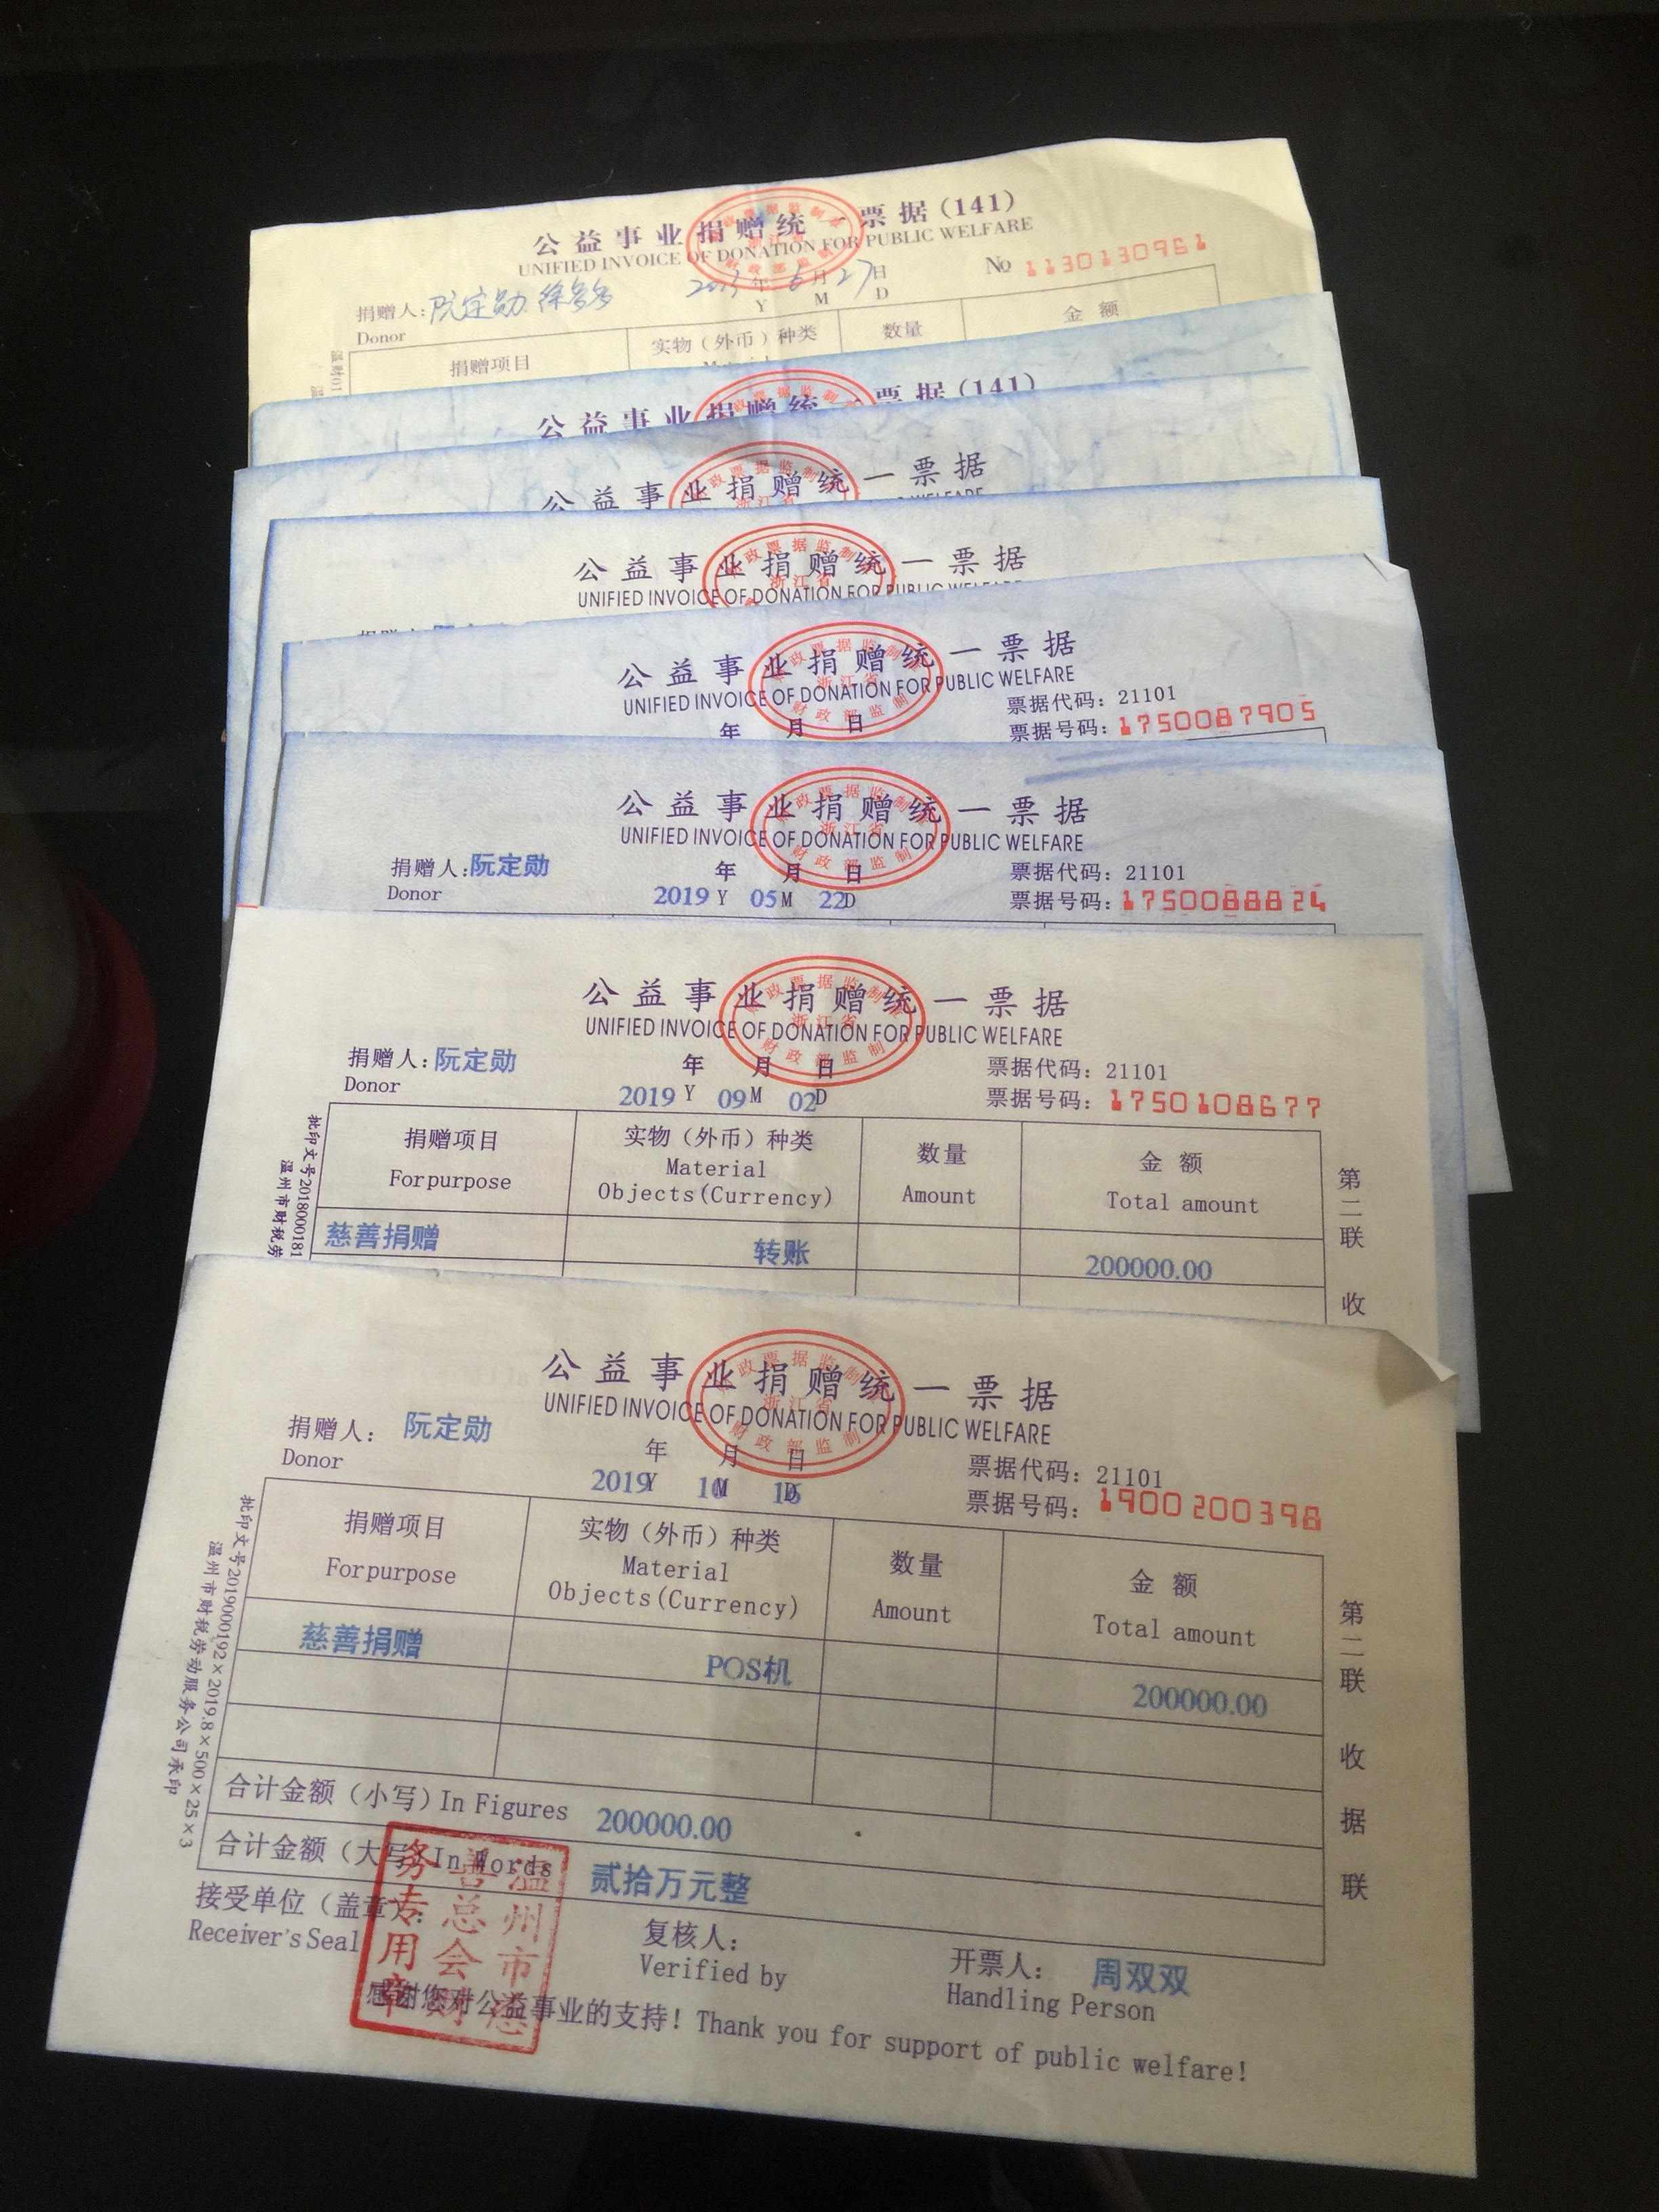 公益事业捐赠统一票据(141)
UNIFIED INVOICE OF DONATION FOR PUBLIC WELFARE
No 1130130961
捐赠人:阮定勋 徐多多 2013年6月27日
Donor Y M D
捐赠项目 实物(外币)种类 数量 金额
公益事业捐赠统一票据(141)
公益事业捐赠统一票据
公益事业捐赠统一票据
UNIFIED INVOICE OF DONATION FOR PUBLIC WELFARE
公益事业捐赠统一票据
UNIFIED INVOICE OF DONATION FOR PUBLIC WELFARE
年 月 日
票据代码:21101
票据号码:1750087905
公益事业捐赠统一票据
UNIFIED INVOICE OF DONATION FOR PUBLIC WELFARE
捐赠人:阮定勋 年 月 日 票据代码:21101
Donor 2019 Y 05 M 22 D 票据号码:1750088824
公益事业捐赠统一票据
UNIFIED INVOICE OF DONATION FOR PUBLIC WELFARE
捐赠人:阮定勋 年 月 日 票据代码:21101
Donor 2019 Y 09 M 02 D 票据号码:1750108677
捐赠项目 实物(外币)种类 数量 金额
For purpose Material Objects(Currency) Amount Total amount
慈善捐赠 转账 200000.00
批印文号2018000181
温州市财税劳
第二联 收
公益事业捐赠统一票据
UNIFIED INVOICE OF DONATION FOR PUBLIC WELFARE
财政票据监制章
浙江省
财政部监制
捐赠人: 阮定勋 年 月 日 票据代码:21101
Donor 2019 Y 10 M 16 D 票据号码:1900200398
捐赠项目 实物(外币)种类 数量 金额
For purpose Material Objects(Currency) Amount Total amount
慈善捐赠 POS机 200000.00
合计金额(小写)In Figures 200000.00
合计金额(大写)In Words 贰拾万元整
接受单位(盖章): 复核人: 开票人: 周双双
Receiver's Seal Verified by Handling Person
温州市慈善总会财务专用章
感谢您对公益事业的支持!Thank you for support of public welfare!
批印文号2019000192×2019.8×500×25×3
温州市财税劳动服务公司承印
第二联 收据联